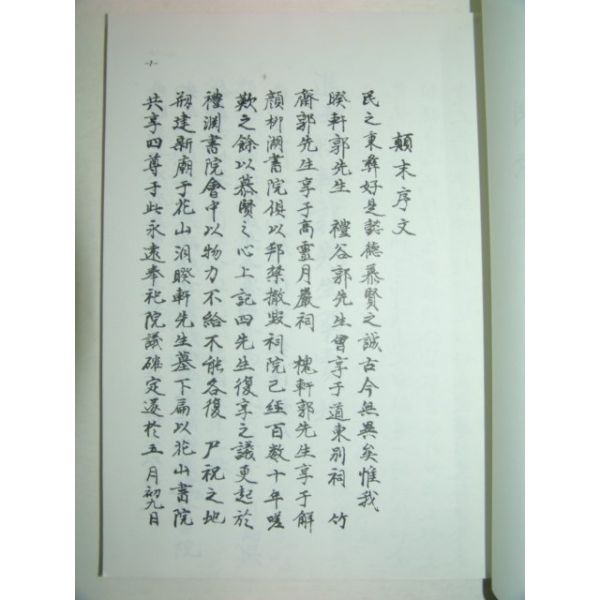 顛末序文
民之秉彝好是懿德慕賢之誠古今無異矣惟我
睽軒郭先生 禮谷郭先生曾享于道東別祠 竹
齋郭先生享于高靈月巖祠 槐軒郭先生享于解
顔柳湖書院俱以邦禁撤毀祠院已經百數十年嗟
歎之餘以慕賢之心上記四先生復享之議更起於
禮淵書院會中以物力不給不能各復 尸祝之地
刱建新廟于花山洞睽軒先生墓下扁以花山書院
共享四尊于此永遠奉祀院議確定遂於五月初九日
-1-